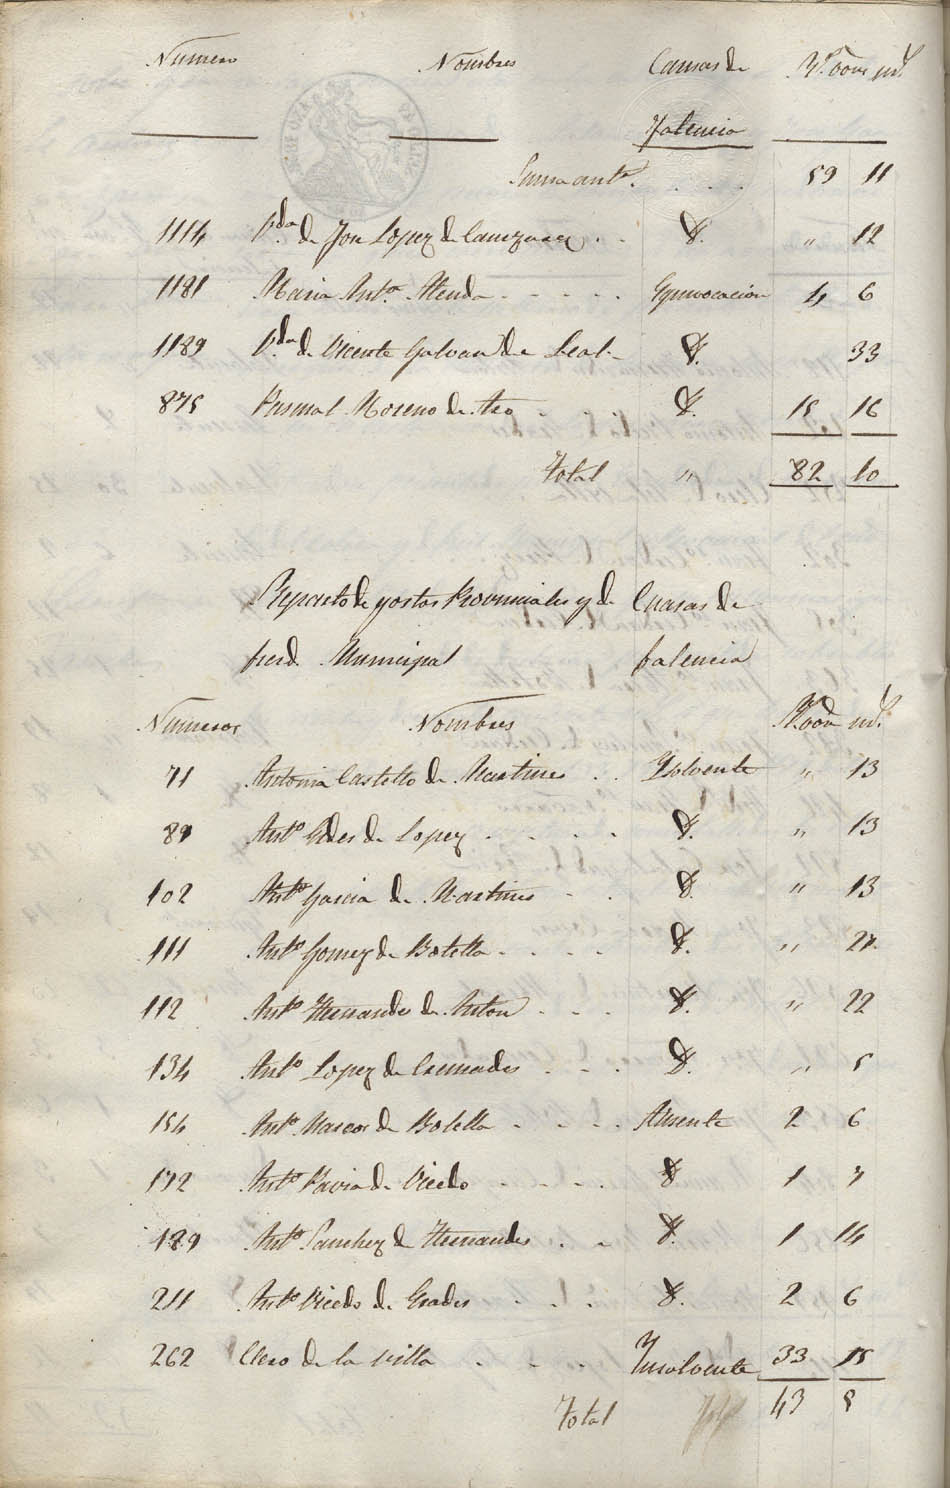 Numero Nombres Causas de Rs. von ms.
falencia
Suma antr. . . . . 59 11
1114 Vda. de Jose Lopez de . . D. " 12
1181 Maria Anta. . . . . . Equivocacion 4 6
1189 Vda. de Vicente Galvan de Leal. D. 33
875 Pascual Moreno de . . . D. 15 16
Total " 82 10
Reparto de gastos Provinciales y de Causas de
pres. Municipal falencia
Numeros Nombres Rs. von ms.
71 Antonia Castello de Martines . . Ysolvente " 13
89 Anto. de Lopez . . . . D. " 13
102 Anto. Garcia de Martines . . D. " 13
111 Anto. Gomez de Botella . . . . D. " 22
112 Anto. Hernandes de Anton . . . D. " 22
134 Anto. Lopez de Cremades . . . D. " 5
154 Anto. Marcos de Botella . . . . Ausente 2 6
172 Anto. Pavia de Vicedo . . . . D 1 7
189 Anto. Sanchez de Hernandes . . D. 1 14
211 Anto. Vicedo de Grades . . . D. 2 6
262 Clero de la villa . . . . Ynsolvente 33 15
Total 43 8